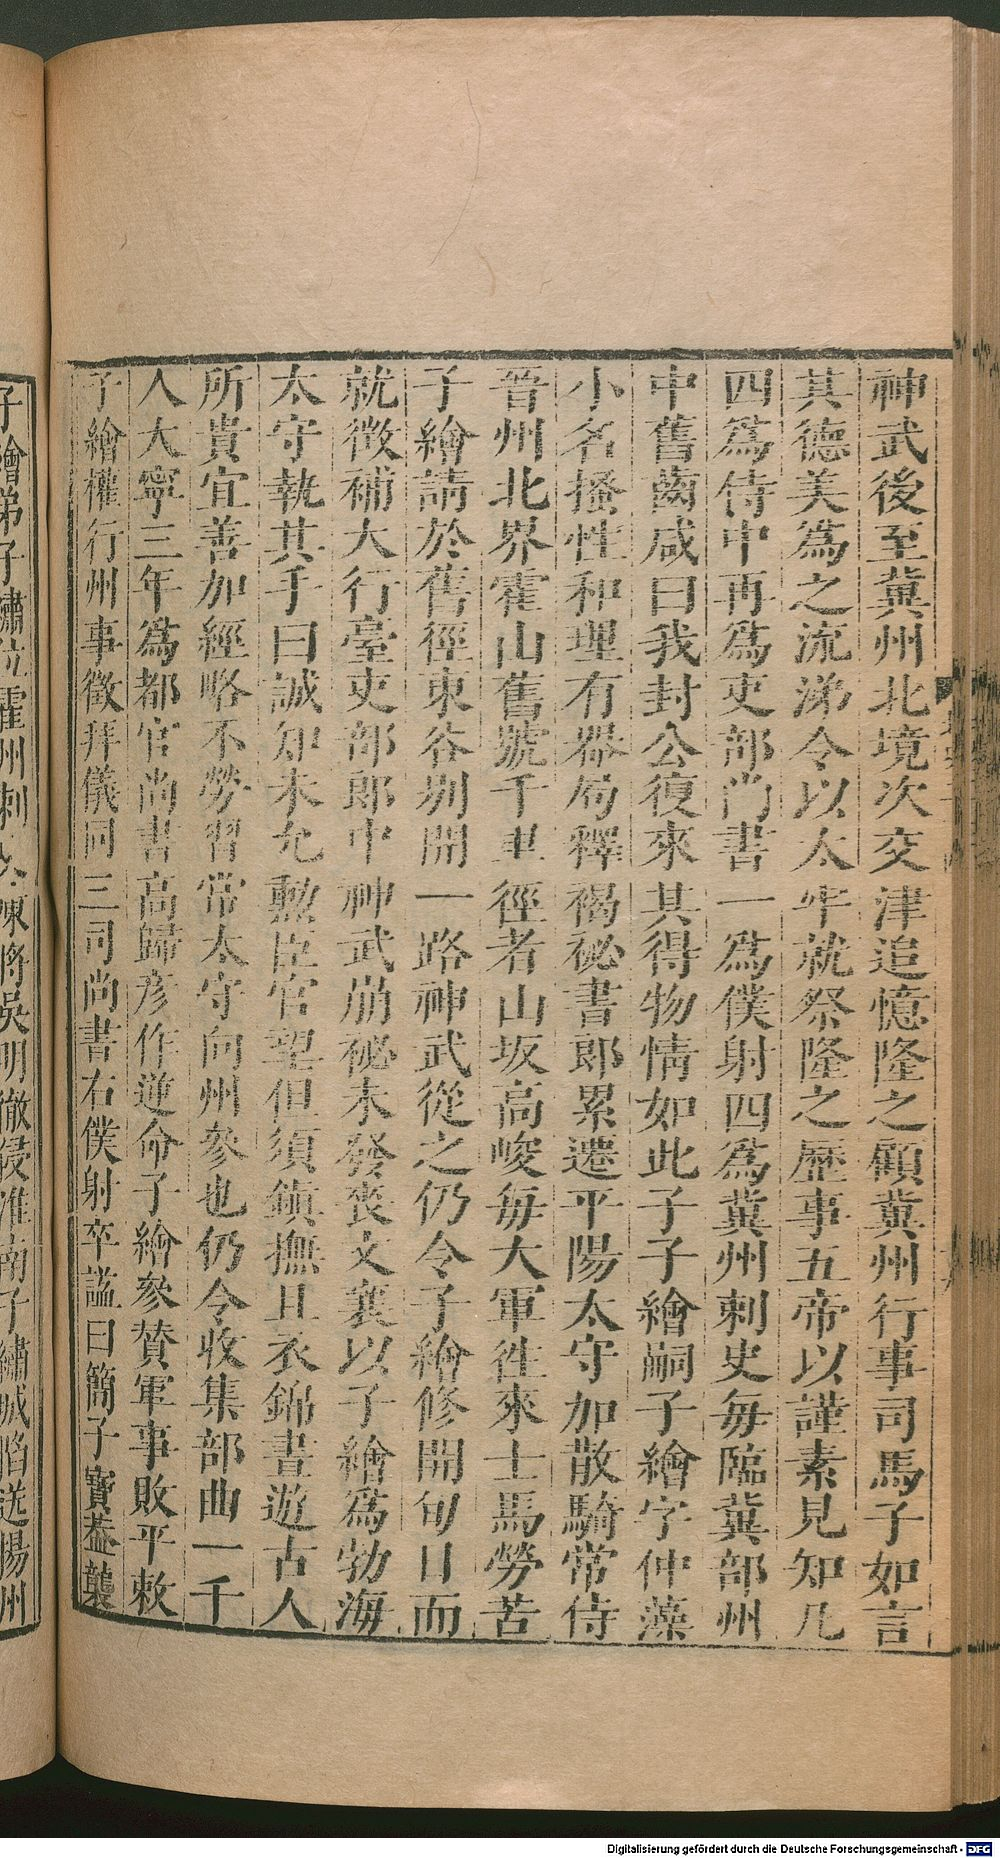 神武後至冀州北境次交津追憶隆之顧冀州行事司馬子如言
其德美爲之流涕令以太牢就祭隆之歷事五帝以謹素見知凡
四爲侍中再爲吏部尚書一爲僕射四爲冀州刺史毎臨冀部州
中舊齒咸曰我封公復來其得物情如此子子繪嗣子繪字仲藻
小名搔性和理有器局釋褐祕書郎累遷平陽太守加散騎常侍
晉州北界霍山舊號千里徑者山坂高峻毎大軍徃來士馬勞苦
子繪請於舊徑東谷別開一路神武從之仍令子繪修開旬日而
就徴補大行臺吏部郎中神武崩祕未發丧文襄以子繪爲勃海
太守執其手曰誠知未允勲臣官望但須鎮撫且衣錦晝遊古人
所貴宜善加經略不勞習常太守向州參也仍令收集部曲一千
人大寧三年爲都官尚書高歸彦作逆命子繪參賛軍事敗平敕
子繪權行州事徴拜儀同三司尚書右僕射卒謚曰簡子寶葢襲
子繪弟子繡位霍州刺史陳將吳明徹侵淮南子繡城陷送揚州
Digitalisierung gefördert durch die Deutsche Forschungsgemeinschaft - DFG